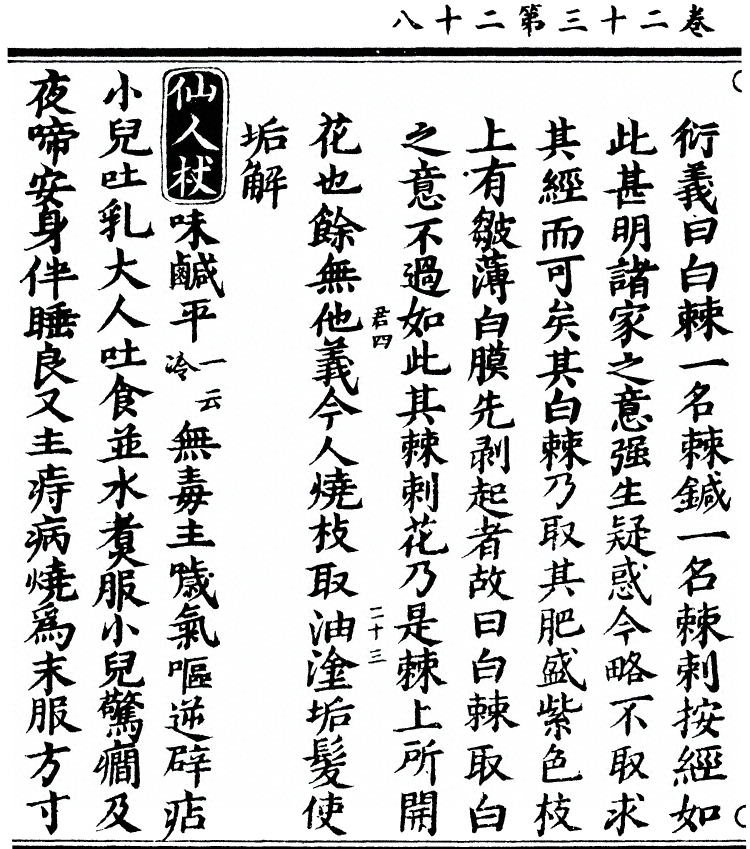 卷二十三第二十八
衍義曰白棘一名棘鍼一名棘刺按經如
此甚明諸家之意强生疑惑今略不取求
其經而可矣其白棘乃取其肥盛紫色枝
上有皺薄白膜先剥起者故曰白棘取白
之意不過如此其棘刺花乃是棘上所開
君四
二十三
花也餘無他義今人燒枝取油塗垢髮使
垢解
仙人杖味鹹平一云冷無毒主噦氣嘔逆辟痁
小兒吐乳大人吐食並水煮服小兒驚癎及
夜啼安身伴睡良又主痔病燒爲末服方寸